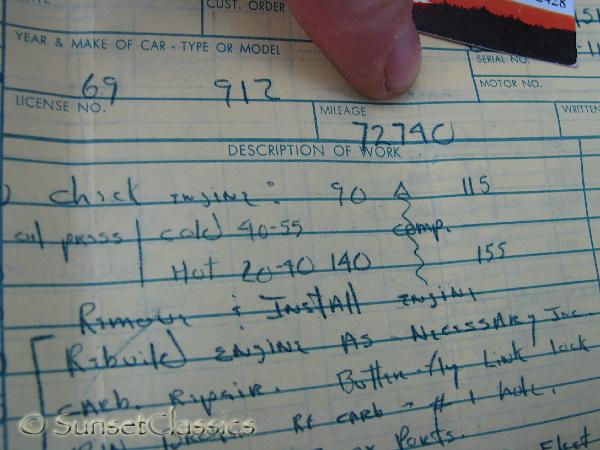 CUST. ORDER 2428
YEAR & MAKE OF CAR - TYPE OR MODEL
SERIAL NO.
69 912
MOTOR NO.
LICENSE NO. MILEAGE WRITTEN
72740
DESCRIPTION OF WORK
Check Engine: 90 115
oil press cold 40-55 comp.
Hot 20-40 140 155
Remove & Install Engine
Rebuild Engine As Necessary Inc.
Carb Repair. Butter-fly Link lock
Rt carb - # 1 hole.
Parts. Elect
© SunsetClassics